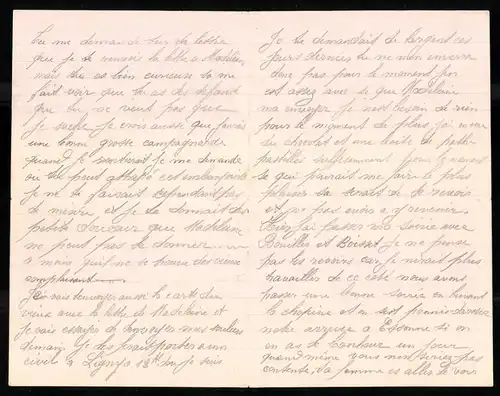 Tu me demande sur ta lettre
que je te renvois la lettre a Madelaine
mais tu es bien curieuse tu me
fait voir que tu as des defaut
que tu ne veut pas que
je sache Je crois aussi que j'avais
une bonne grosse campagnarde
quand je sortirait je me demande
ou tu peut attapé cet embonpoint
Je ne te faisait cependant pas
de misère et je te donnait des
petite que Madelaine
ne peut pas te donner
a moins qu'il ne se trouve des vieux
complaisant
Je vais t'envoyer aussi la carte du
vieux avec la lettre de Madelaine et
je vais essayer de t'envoyer mes souliers
demain Je les ferait porter a un
civil a Ligny 13H ou je suis
Je te demandait de l'argent ces
jours derniers tu ne m'en enverra
donc pas pour le moment j'en
est assez avec ce que Madelaine
ma envoyer Je n'est besoin de rien
pour le moment de plus j'ai recu
du chocolat et une boite de petite
pastilles seulement pour le moment
ce qui pourait me faire le plus
plaisir ca serait de te revoir
et pas encore a y revenir
Hier j'ai passer ma soirée avec
Bouilles et Boissot Je ne pense
pas les revoir car je n'irait plus
travailler de ce coté nous avons
passer une bonne soirée en buvant
la chopine et en
notre arrivée a si on
en as le bonheur un jour
quand même vous nous seriez pas
contente, ta femme es allée te voir